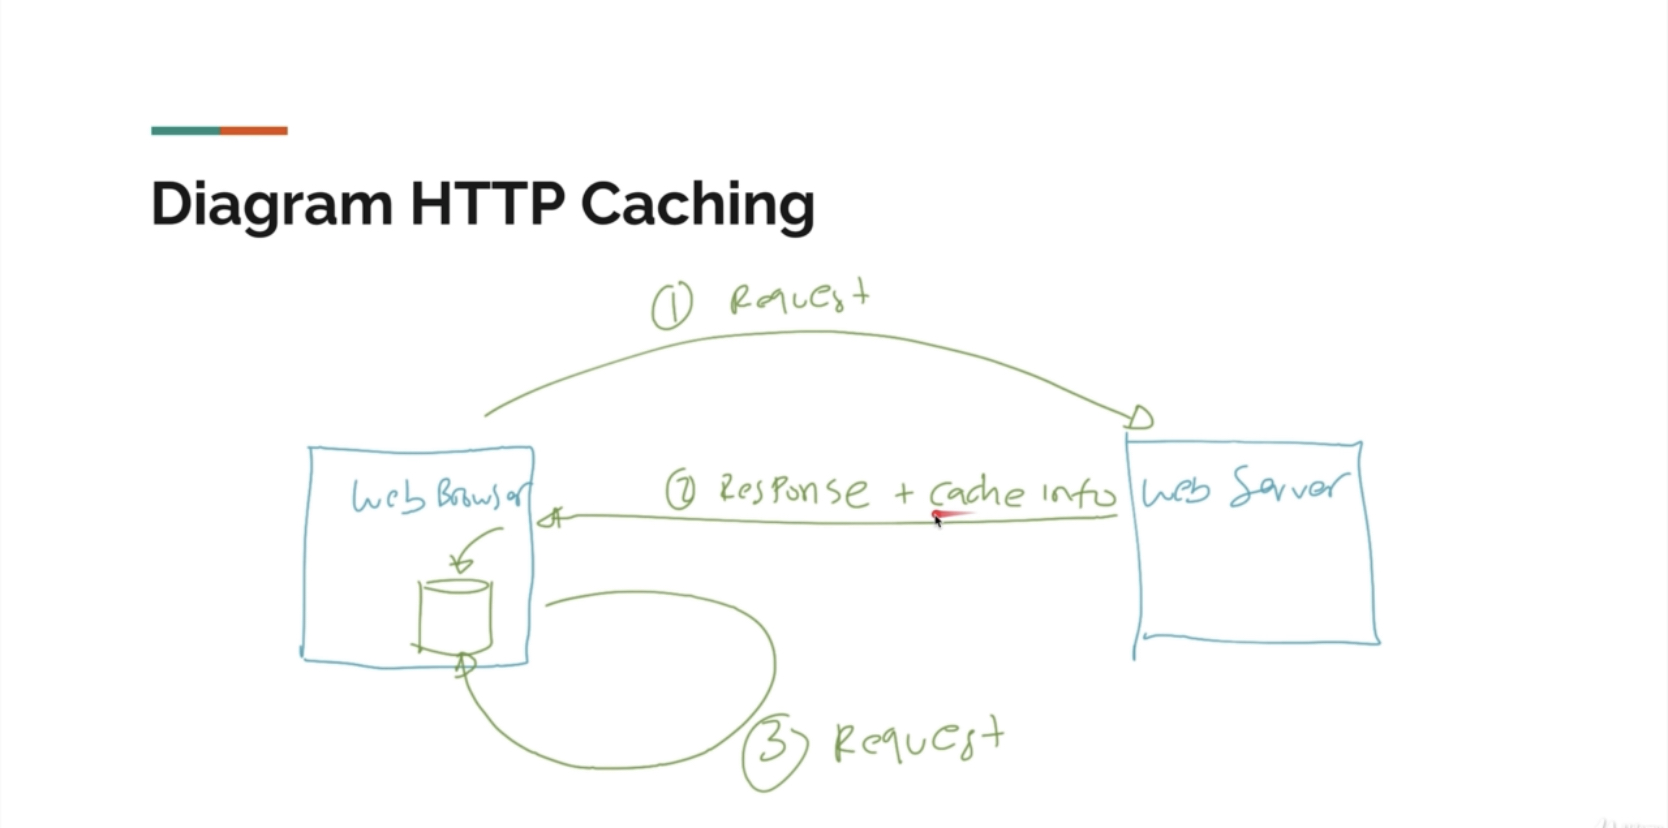 Diagram HTTP Caching
① Request
Web Browser
② Response + Cache info
Web Server
③ Request